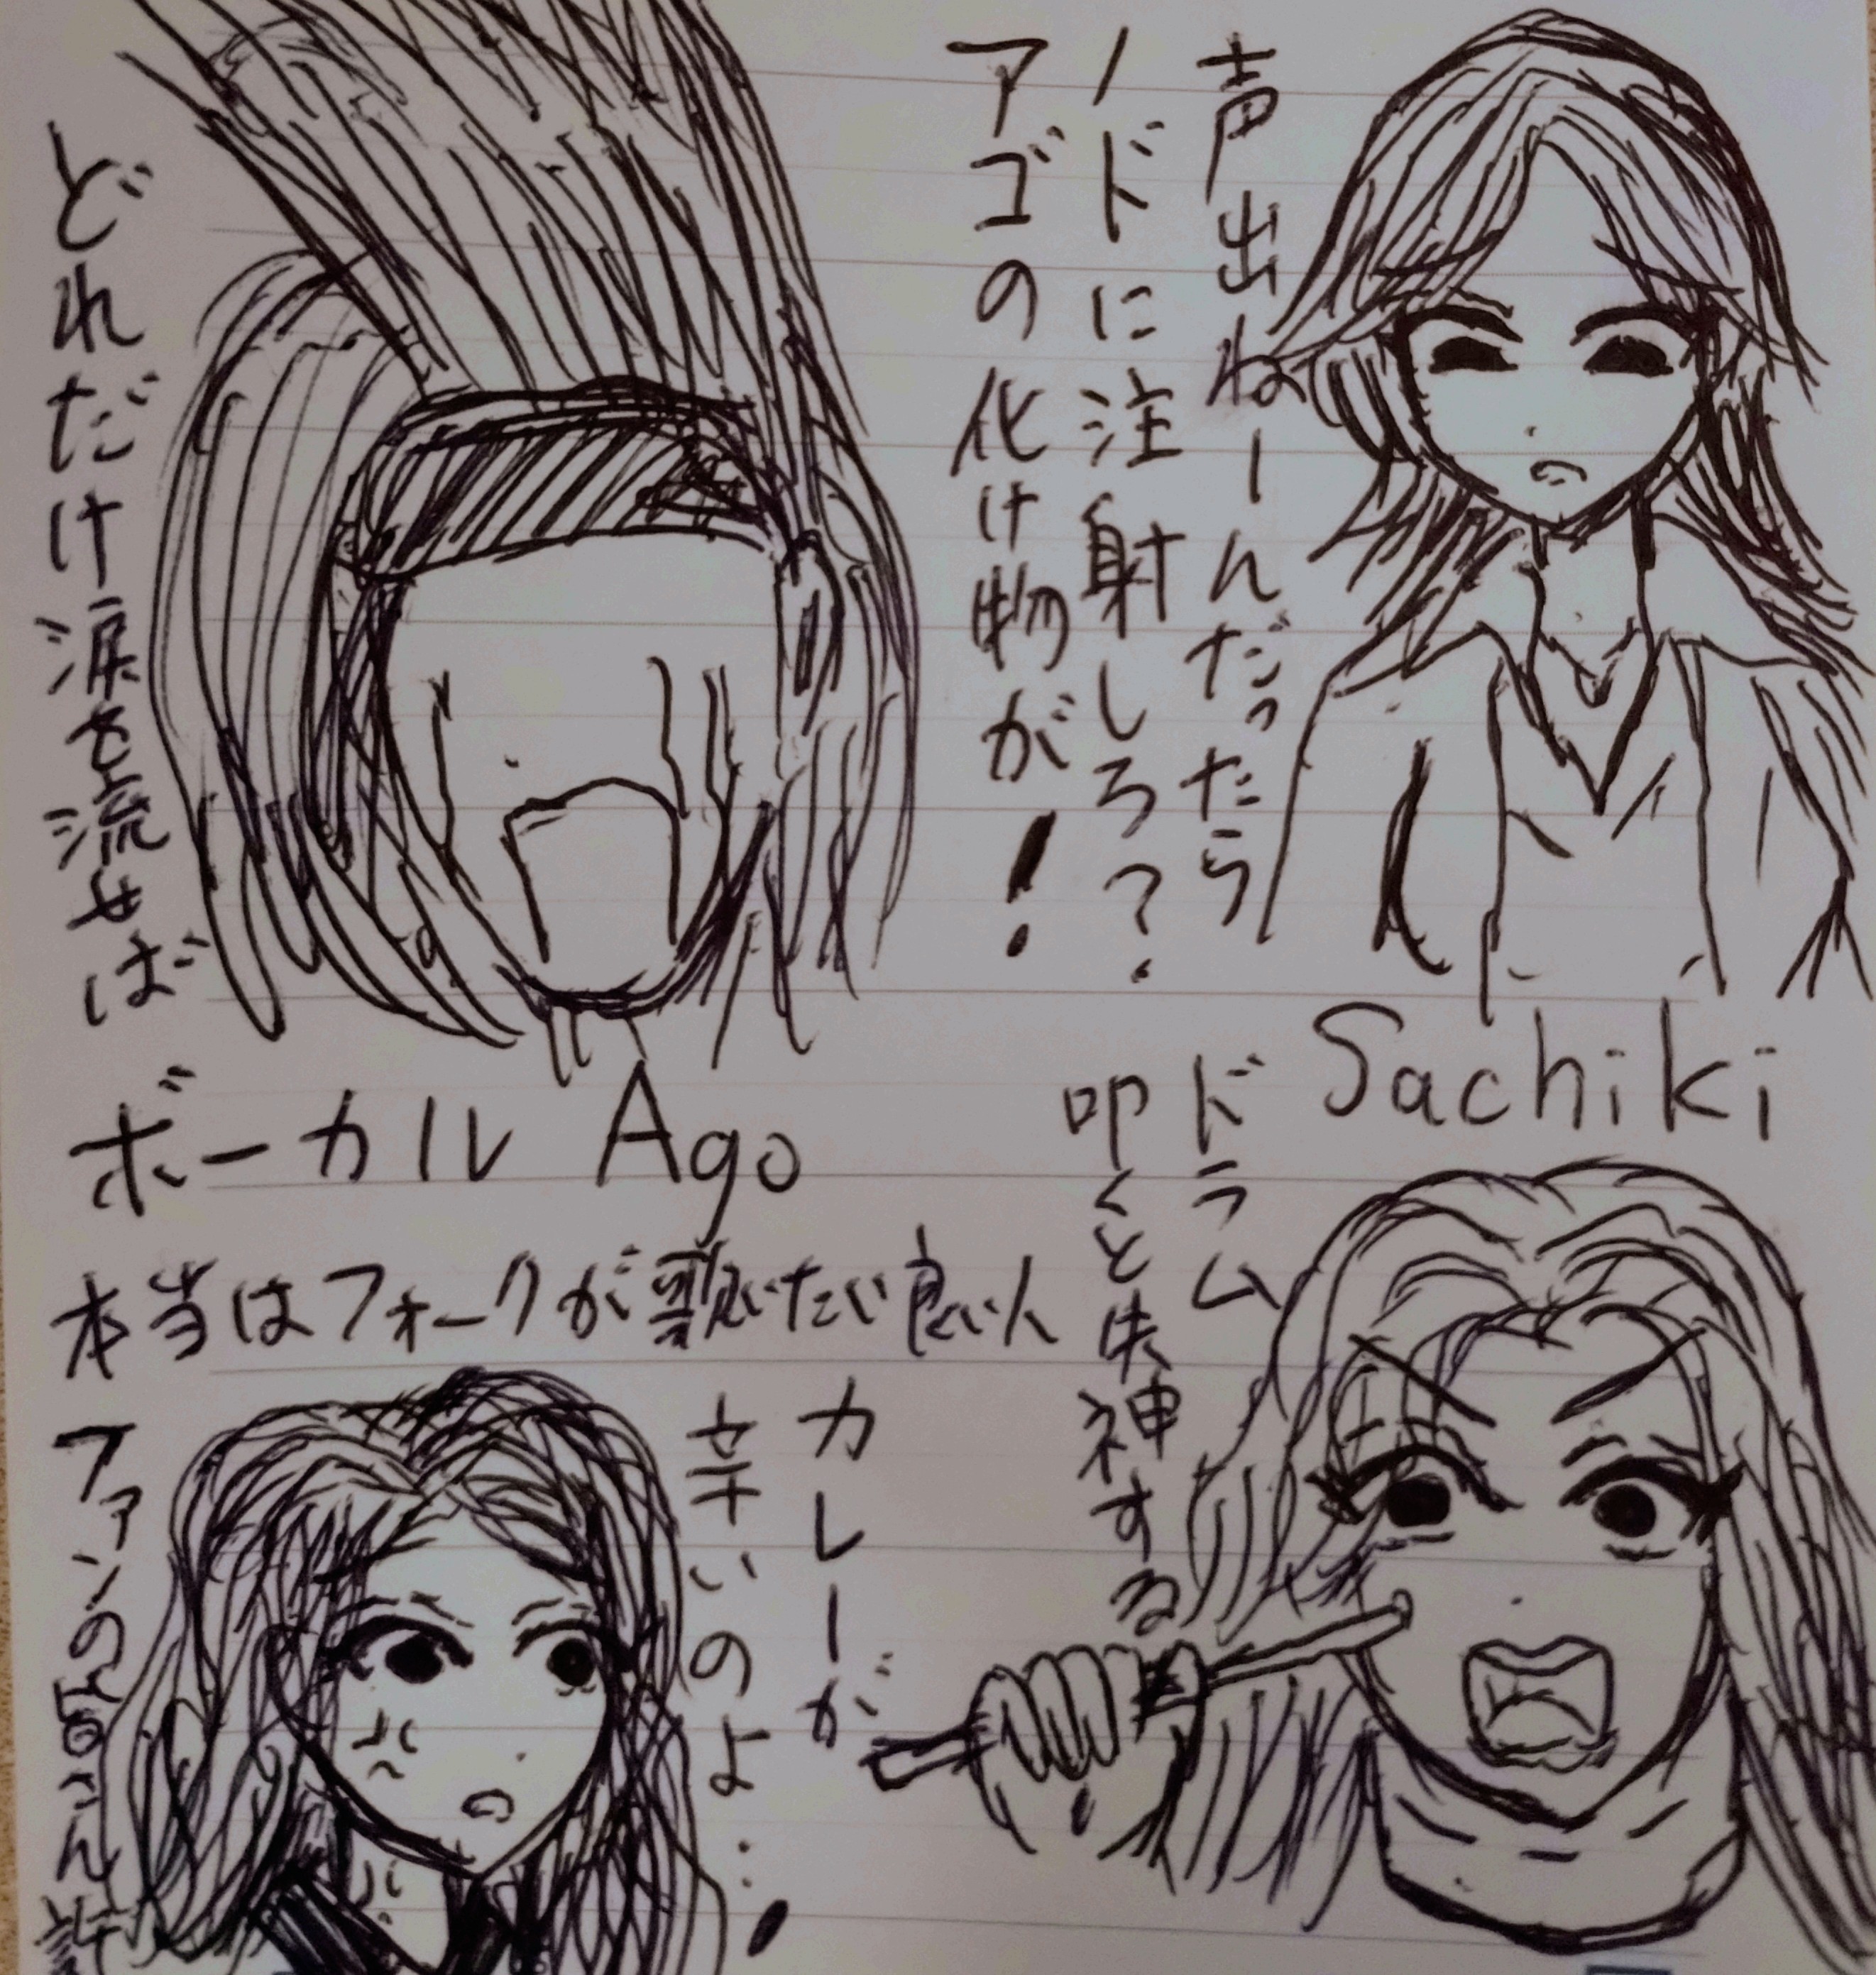 声出ねーんだったら
ノドに注射しろ?
アゴの化け物が!
どれだけ涙を流せば
Sachiki
ボーカル Ago
本当はフォークが歌いたい良い人
ドラム
叩くと失神する
カレーが
辛いのよ…!
ファンの皆さん許